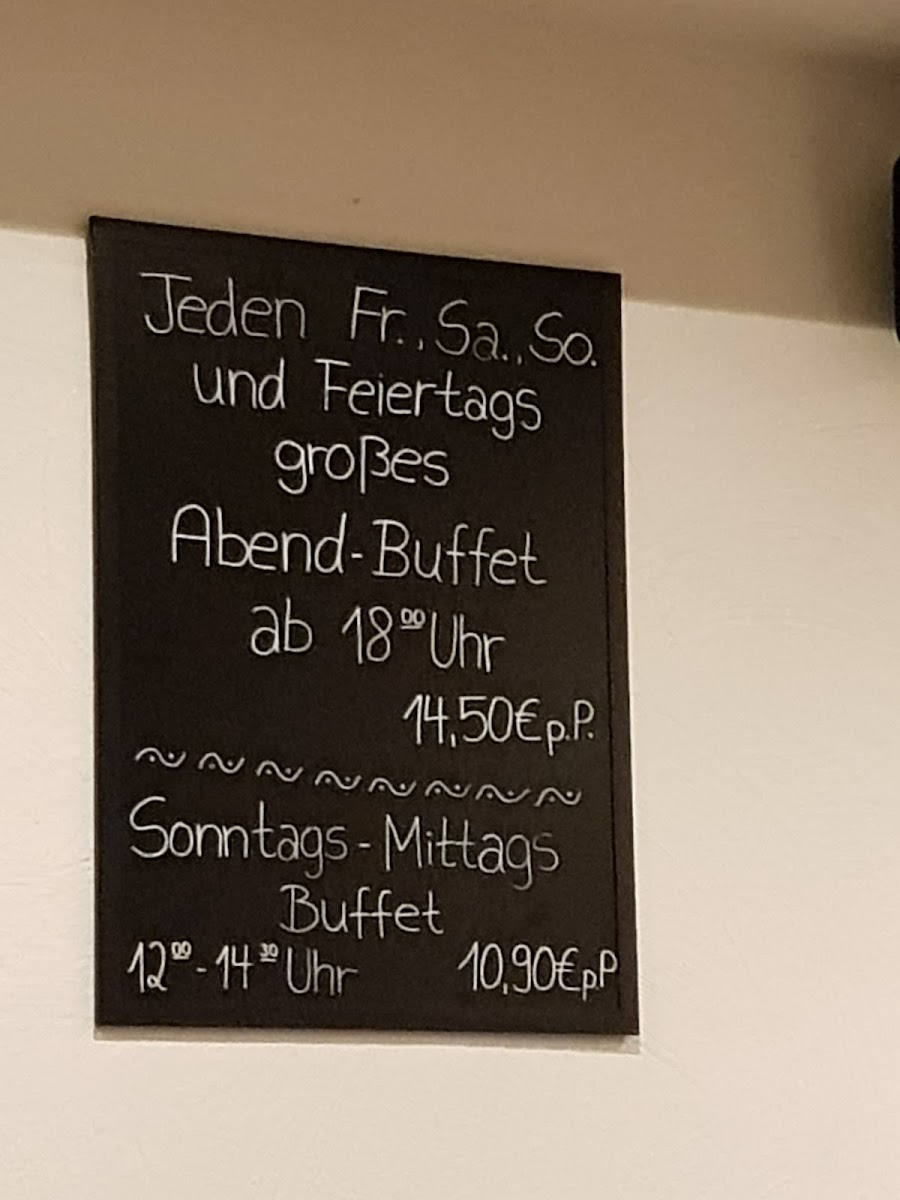 Jeden Fr., Sa., So.
und Feiertags
großes
Abend-Buffet
ab 18⁰⁰ Uhr
14,50€ p.P.
Sonntags-Mittags
Buffet
12⁰⁰-14³⁰ Uhr 10,90€ p.P